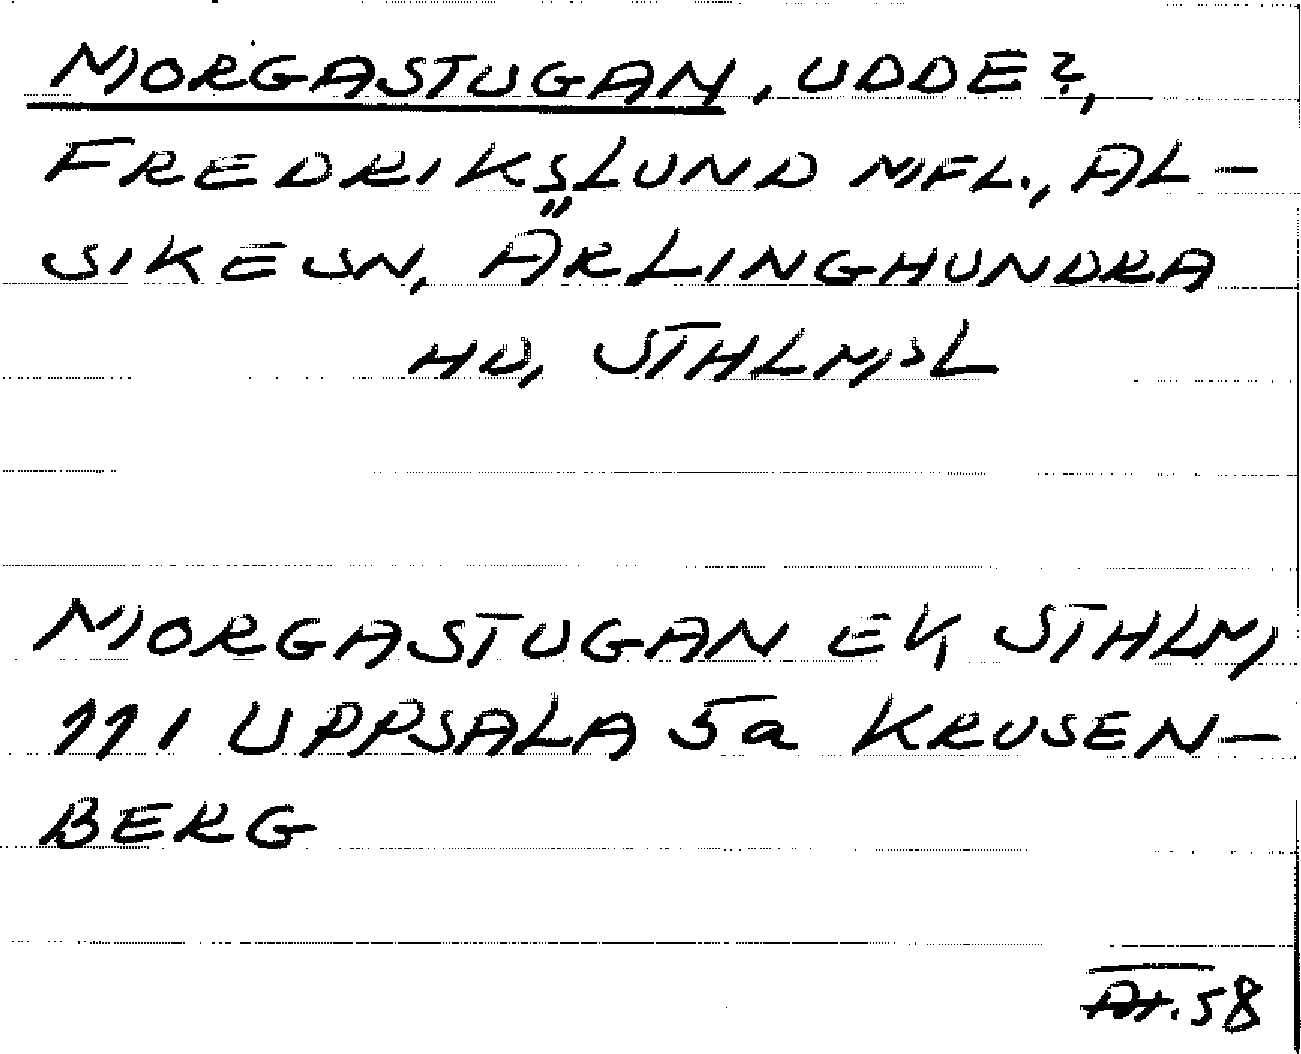 MORGASTUGAN, UDDE?,
FREDRIKSLUND MFL., AL-
SIKE SN, ÄRLINGHUNDRA
HD, STHLMSL
MORGASTUGAN EK, STHLM,
11 I UPPSALA 5a KRUSEN-
BERG
58